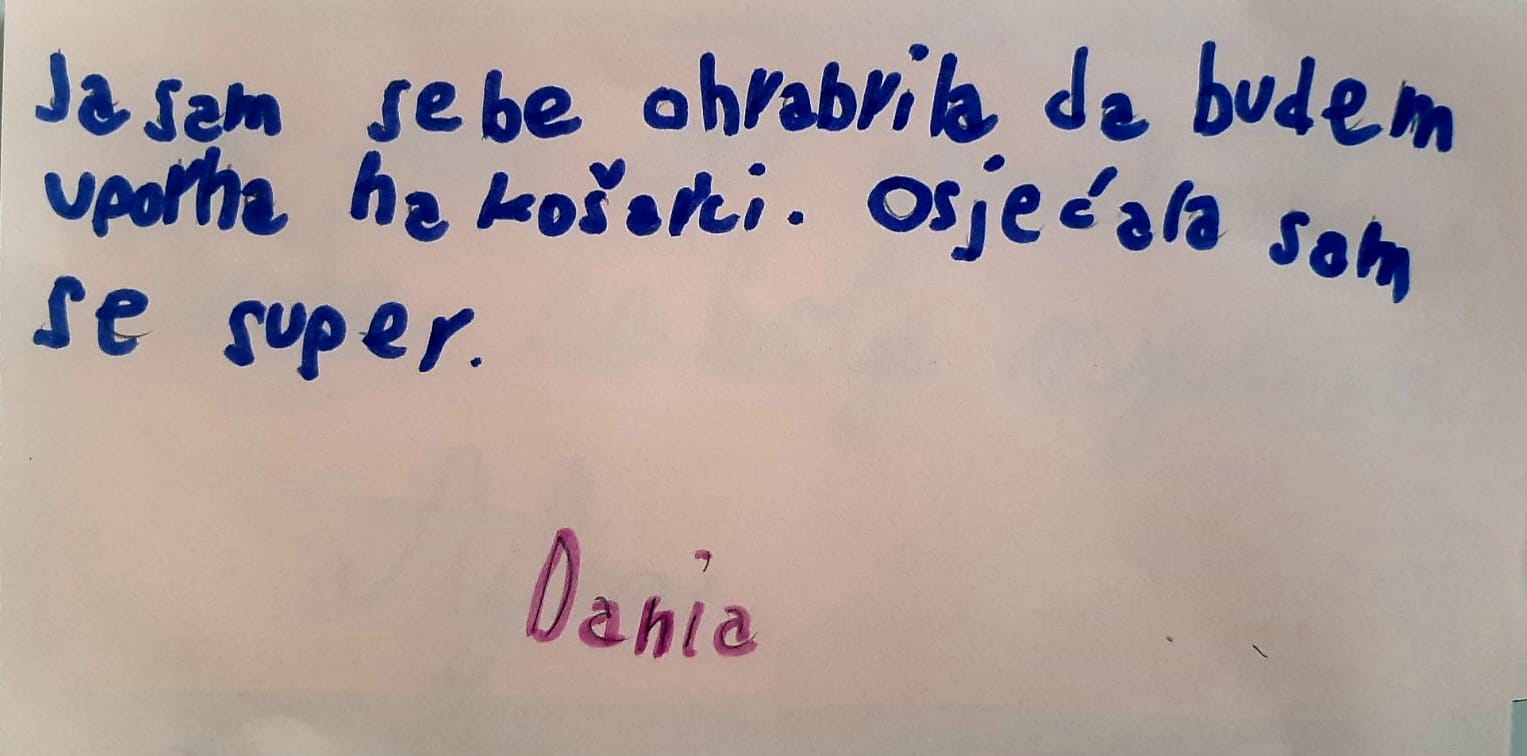 Ja sam sebe ohrabrila da budem
uporna na košarki. Osjećala sam
se super.
Dania